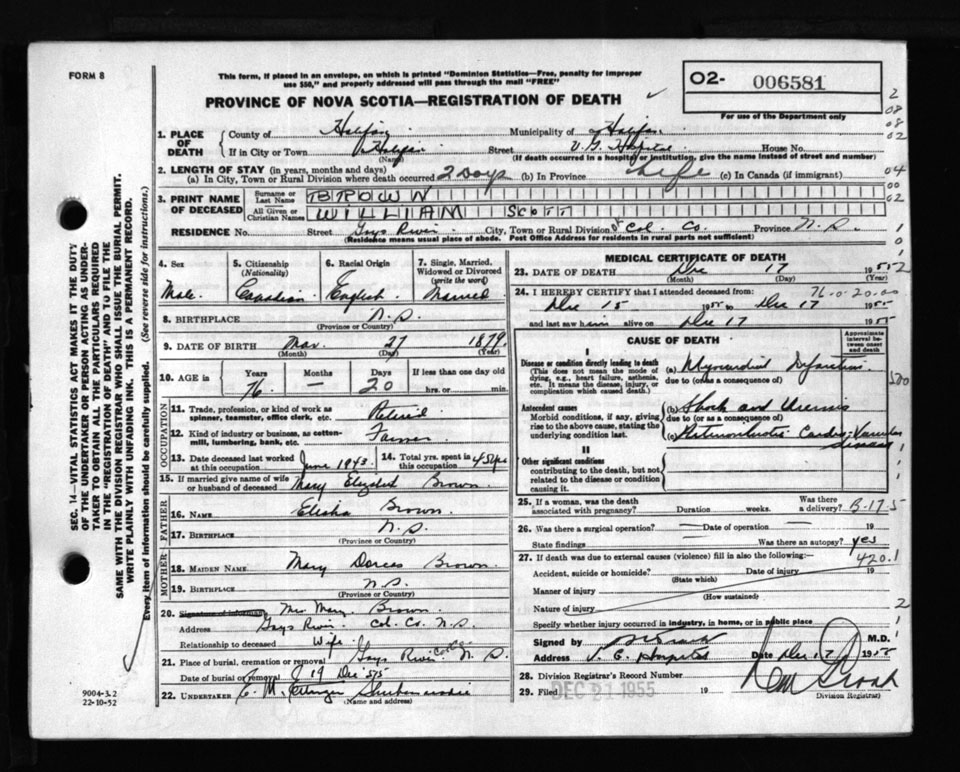 FORM 8
This form, if placed in an envelope, on which is printed "Dominion Statistics—Free, penalty for improper
use $50," and properly addressed will pass through the mail "FREE"
O2- 006581
For use of the Department only
PROVINCE OF NOVA SCOTIA—REGISTRATION OF DEATH
1. PLACE OF DEATH
County of Halifax Municipality of Halifax
If in City or Town Halifax Street V. G. Hospital House No.
(Name) (If death occurred in a hospital or institution, give the name instead of street and number)
2. LENGTH OF STAY (in years, months and days)
(a) In City, Town or Rural Division where death occurred 2 Days (b) In Province Life (c) In Canada (if immigrant)
3. PRINT NAME OF DECEASED
Surname or Last Name BROWN
All Given or Christian Names WILLIAM SCOTT
RESIDENCE No. Street Gays River City, Town or Rural Division Col. Co. Province N.S.
(Residence means usual place of abode. Post Office Address for residents in rural parts not sufficient)
4. Sex Male
5. Citizenship (Nationality) Canadian
6. Racial Origin English
7. Single, Married, Widowed or Divorced (write the word) Married
8. BIRTHPLACE N.S.
(Province or Country)
9. DATE OF BIRTH Mar. 27 1879
(Month) (Day) (Year)
10. AGE in Years 76 Months — Days 20 If less than one day old hrs. or min.
OCCUPATION
11. Trade, profession, or kind of work as spinner, teamster, office clerk, etc. Retired
12. Kind of industry or business, as cotton-mill, lumbering, bank, etc. Farmer
13. Date deceased last worked at this occupation June 1943
14. Total yrs. spent in this occupation 45 yrs
15. If married give name of wife or husband of deceased Mary Elizabeth Brown
FATHER
16. NAME Elisha Brown
17. BIRTHPLACE N.S.
(Province or Country)
MOTHER
18. MAIDEN NAME Mary Dorcas Brown
19. BIRTHPLACE N.S.
(Province or Country)
20. Signature of informant Mrs Mary Brown
Address Gays River Col. Co. N.S.
Relationship to deceased Wife
21. Place of burial, cremation or removal Gays River Col Co N.S.
Date of burial or removal 19 Dec 55
22. UNDERTAKER Shubenacadie
(Name and address)
MEDICAL CERTIFICATE OF DEATH
23. DATE OF DEATH Dec 17 1955
24. I HEREBY CERTIFY that I attended deceased from: 76-0-20-00
Dec 15 1955 to Dec 17 1955
and last saw him alive on Dec 17 1955
CAUSE OF DEATH
Approximate interval between onset and death
I
Disease or condition directly leading to death
(This does not mean the mode of dying, e.g., heart failure, asthenia, etc. It means the disease, injury, or complication which caused death.)
(a) Myocardial Infarction
due to (or as a consequence of)
Antecedent causes
Morbid conditions, if any, giving rise to the above cause, stating the underlying condition last.
(b) Shock and Uremia
due to (or as a consequence of)
(c) Arteriosclerotic Cardio-Vascular Disease
II
Other significant conditions
contributing to the death, but not related to the disease or condition causing it.
25. If a woman, was the death associated with pregnancy? Duration weeks. Was there a delivery? B-17-5
26. Was there a surgical operation? Date of operation 19
State findings Was there an autopsy? yes
27. If death was due to external causes (violence) fill in also the following:— 420.1
Accident, suicide or homicide? Date of injury 19
(State which)
Manner of injury
(How sustained)
Nature of injury
Specify whether injury occurred in industry, in home, or in public place
Signed by M.D.
Address V. G. Hospital Date Dec 17 1955
28. Division Registrar's Record Number
29. Filed DEC 21 1955 19
Division Registrar)
SEC. 14—VITAL STATISTICS ACT MAKES IT THE DUTY
OF THE UNDERTAKER OR PERSON ACTING AS UNDER-
TAKER TO OBTAIN ALL THE PARTICULARS REQUIRED
IN THE "REGISTRATION OF DEATH" AND TO FILE THE
SAME WITH THE DIVISION REGISTRAR WHO SHALL ISSUE THE BURIAL PERMIT.
WRITE PLAINLY WITH UNFADING INK. THIS IS A PERMANENT RECORD.
Every item of information should be carefully supplied. (See reverse side for instructions.)
9004-3.2
22-10-52